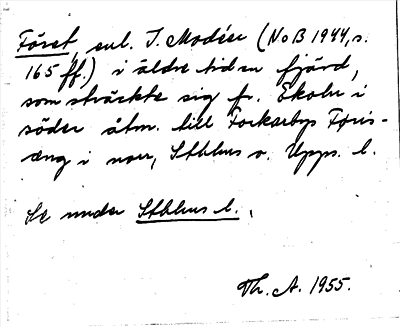 Föret, enl. I. Modéer (NoB 1944, s.
165 ff.) i äldre tid en fjärd,
som sträckte sig fr. Ekoln i
söder åtm. till Forkarbys Føris-
æng i norr, Sthlms o. Upps. l.
Se under Sthlms l.
Th. A. 1955.